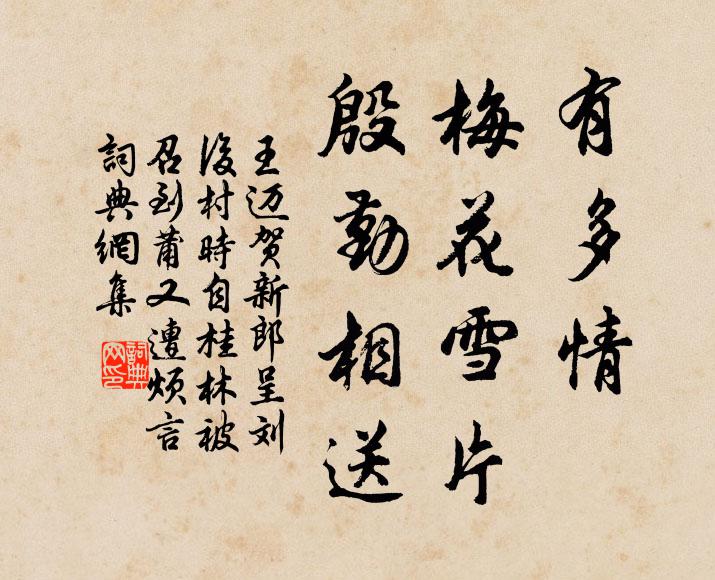 有多情
梅花雪片
殷勤相送
王迈贺新郎呈刘
後村時自桂林被
召到莆又遭煩言
詞典網集
詞典
网印